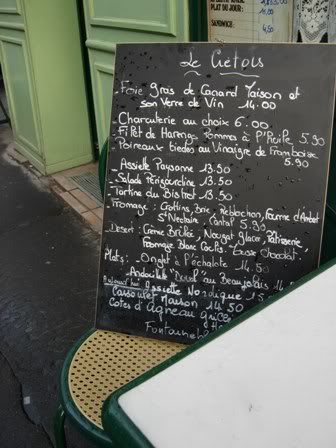 PLAT DU JOUR
SANDWICH
4,50
Le Cretois
Foie gras de Canard Maison et
son Verre de Vin 14.00
- Charcuterie au choix 6.00
- Filet de Harengs Pommes à l'Huile 5.90
- Poireaux tiedes au Vinaigre de Framboise
5.90
Assiette Paysanne 13.50
- Salade Périgourdine 13.50
- Tartine du Bistrot 13.50
- Fromage : Crottins, Brie, Reblochon, Fourme d'Ambert
St Nectaire, Cantal 5.90
Dessert : Crème Brulée, Nougat glacé, Patisserie,
Fromage Blanc Coulis, Tasse Chocolat
Plats : - Onglet à l'échalote 14.50
- Andouillette "Duval" au Beaujolais 14
Assiette Nordique 15
Cassoulet Maison 14.50
Cotes d'Agneau